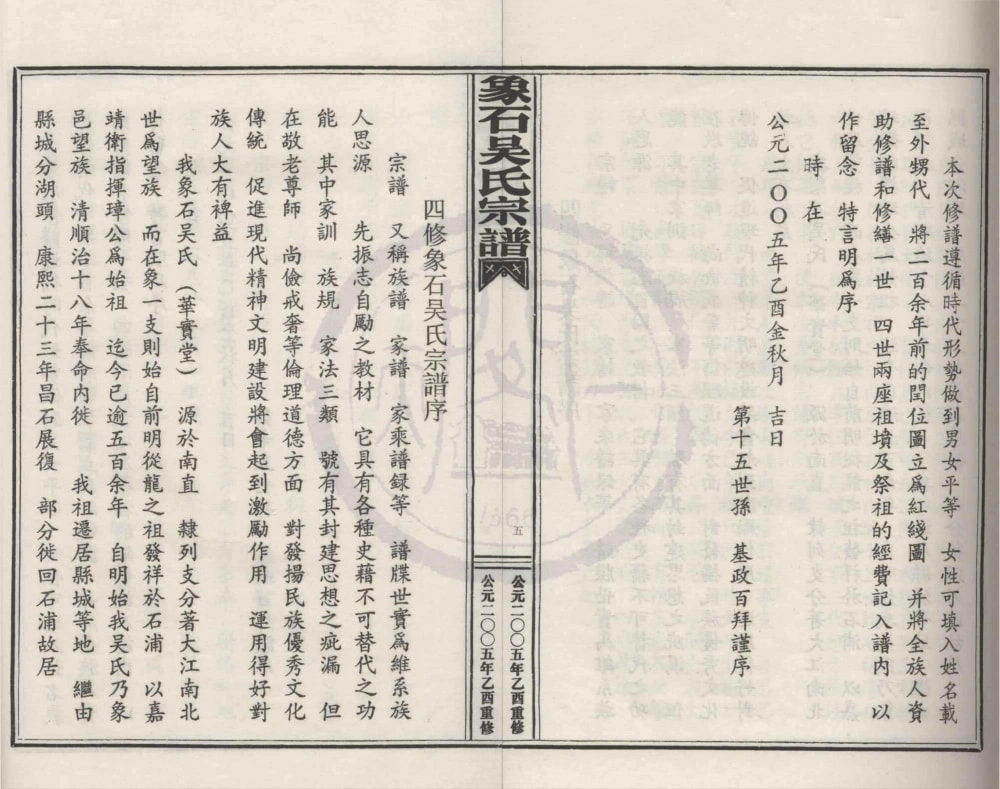 本次修譜遵循時代形勢做到男女平等 女性可填入姓名載
至外甥代 將二百余年前的閏位圖立爲紅綫圖 并將全族人資
助修譜和修繕一世 四世兩座祖墳及祭祖的經費記入譜内 以
作留念 特言明爲序
時 在
公元二〇〇五年乙酉金秋月 吉日
第十五世孫 基政百拜謹序
象石吴氏宗譜
五
公元二〇〇五年乙酉重修
公元二〇〇五年乙酉重修
四修象石吴氏宗譜序
宗譜 又稱族譜 家譜 家乘譜録等 譜牒世實爲維系族
人思源 先振志自勵之教材 它具有各種史藉不可替代之功
能 其中家訓 族規 家法三類 號有其封建思想之疵漏 但
在敬老尊師 尚儉戒奢等倫理道德方面 對發揚民族優秀文化
傳統 促進現代精神文明建設將會起到激勵作用 運用得好對
族人大有裨益
我象石吴氏（華實堂） 源於南直 隸列支分著大江南北
世爲望族 而在象一支則始自前明從龍之祖發祥於石浦 以嘉
靖衛指揮璋公爲始祖 迄今已逾五百余年 自明始我吴氏乃象
邑望族 清順治十八年奉命内徙 我祖遷居縣城等地 繼由
縣城分湖頭 康熙二十三年昌石展復 部分徙回石浦故居